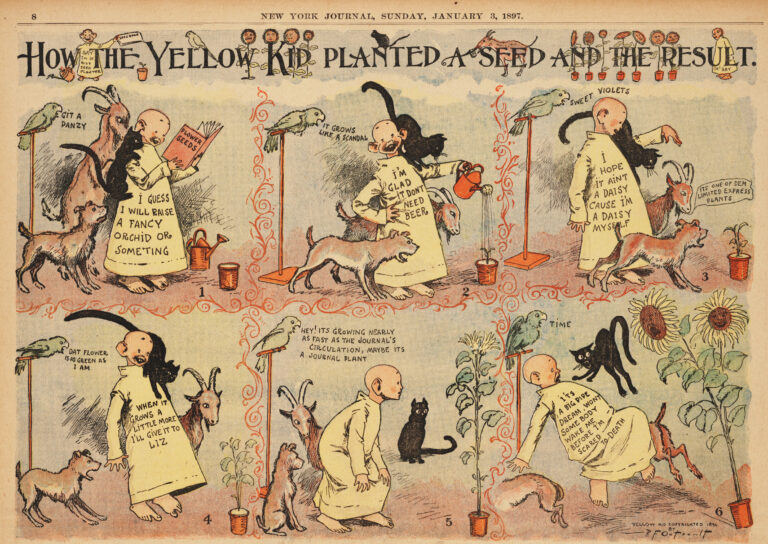 8
NEW YORK JOURNAL, SUNDAY, JANUARY 3, 1897.
HOW THE YELLOW KID PLANTED A SEED AND THE RESULT.
GIT A
DANZY
FLOWER
SEEDS
I GUESS
I WILL RAISE
A FANCY
ORCHID OR
SOMETING
1
IT GROWS
LIKE A SCANDAL
I'M
GLAD
IT DONT
NEED
BEER
2
SWEET VIOLETS
I
HOPE
IT AINT
A DAISY
CAUSE I'M
A DAISY
MYSELF
ITS ONE OF DEM
LIMITED EXPRESS
PLANTS
3
DAT FLOWER
IS AS GREEN AS
I AM
WHEN IT
GROWS A
LITTLE MORE
I'LL GIVE IT TO
LIZ
4
HEY! ITS GROWING NEARLY
AS FAST AS THE JOURNAL'S
CIRCULATION, MAYBE ITS
A JOURNAL PLANT
5
TIME
ITS
A BIG PIPE
DREAM. WONT
SOME BODY
WAKE ME
BEFORE I'M
SCARED
TO DEATH
YELLOW KID COPYRIGHTED 1896
BY
6